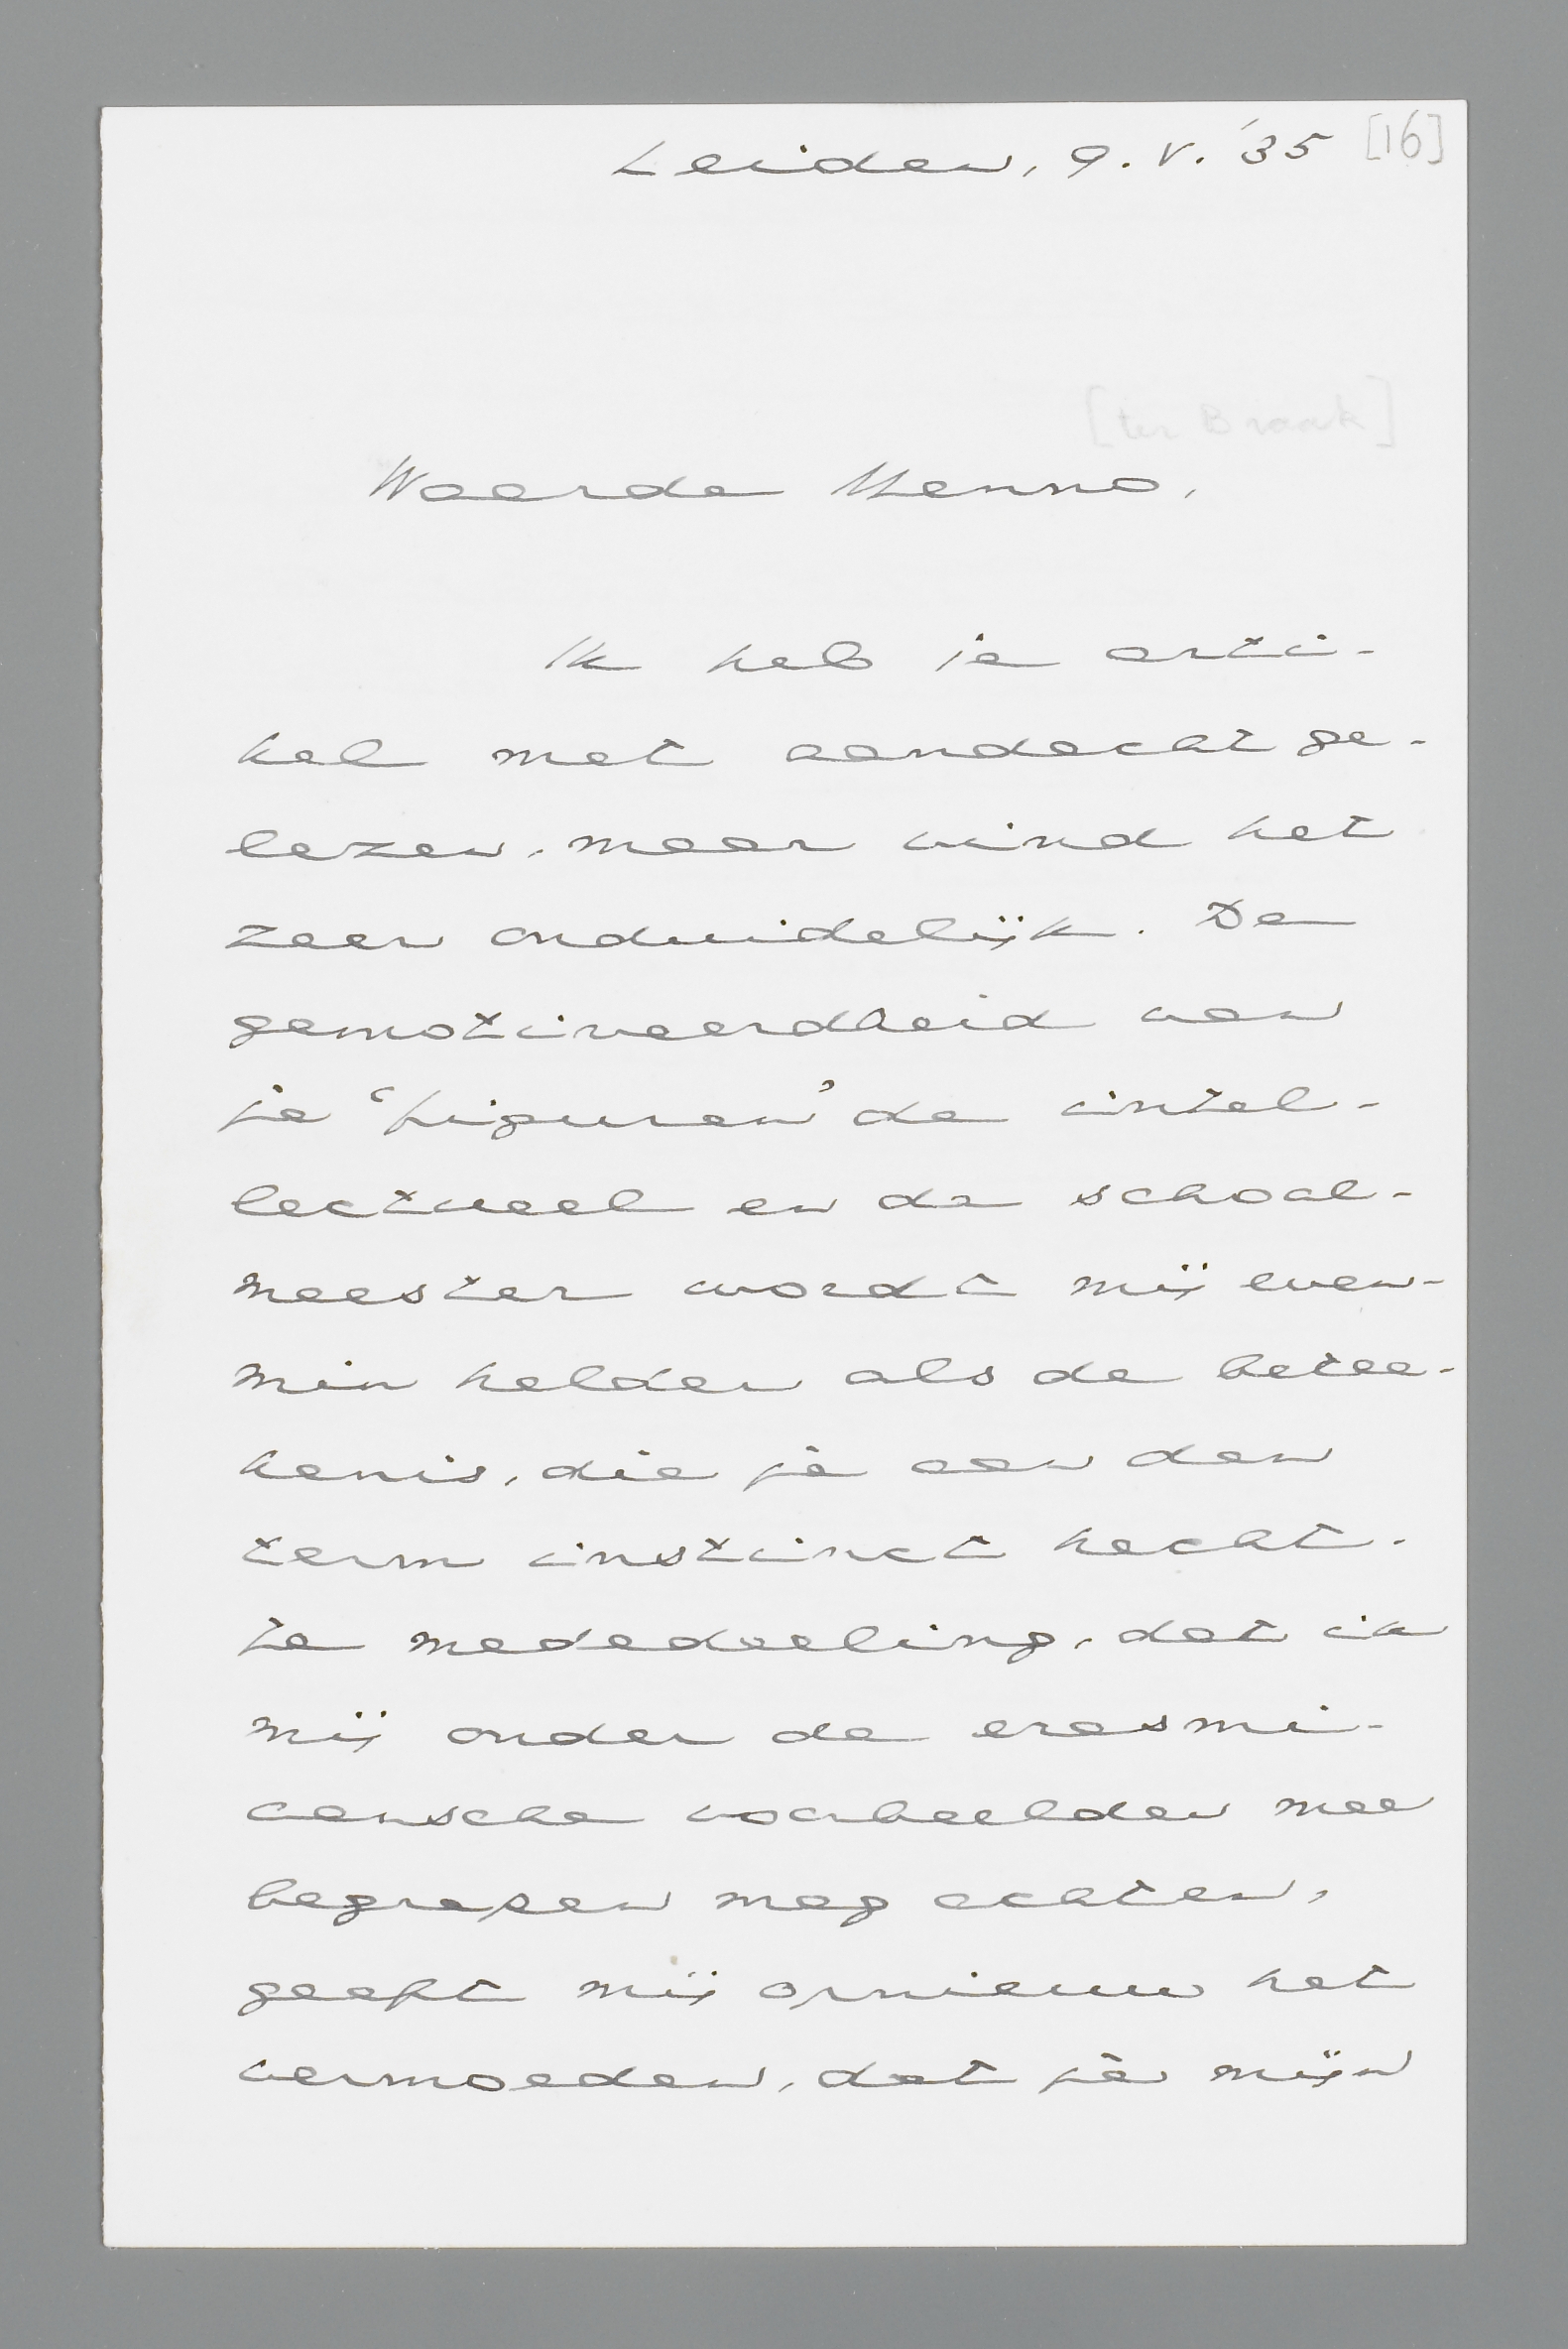 Leiden, 9.V.'35 [16]
[ter Braak]
Waarde Menno,
Ik heb je arti-
kel met aandacht ge-
lezen, maar vind het
zeer onduidelijk. De
gemotiveerdheid van
je 'figuren' de intel-
lectueel en de school-
meester wordt mij even-
min helder als de betee-
kenis, die je aan den
term instinct hecht.
Je mededeeling, dat ik
mij onder de erasmi-
aansche voorbeelden mee
begrepen mag achten,
geeft mij opnieuw het
vermoeden, dat je mijn